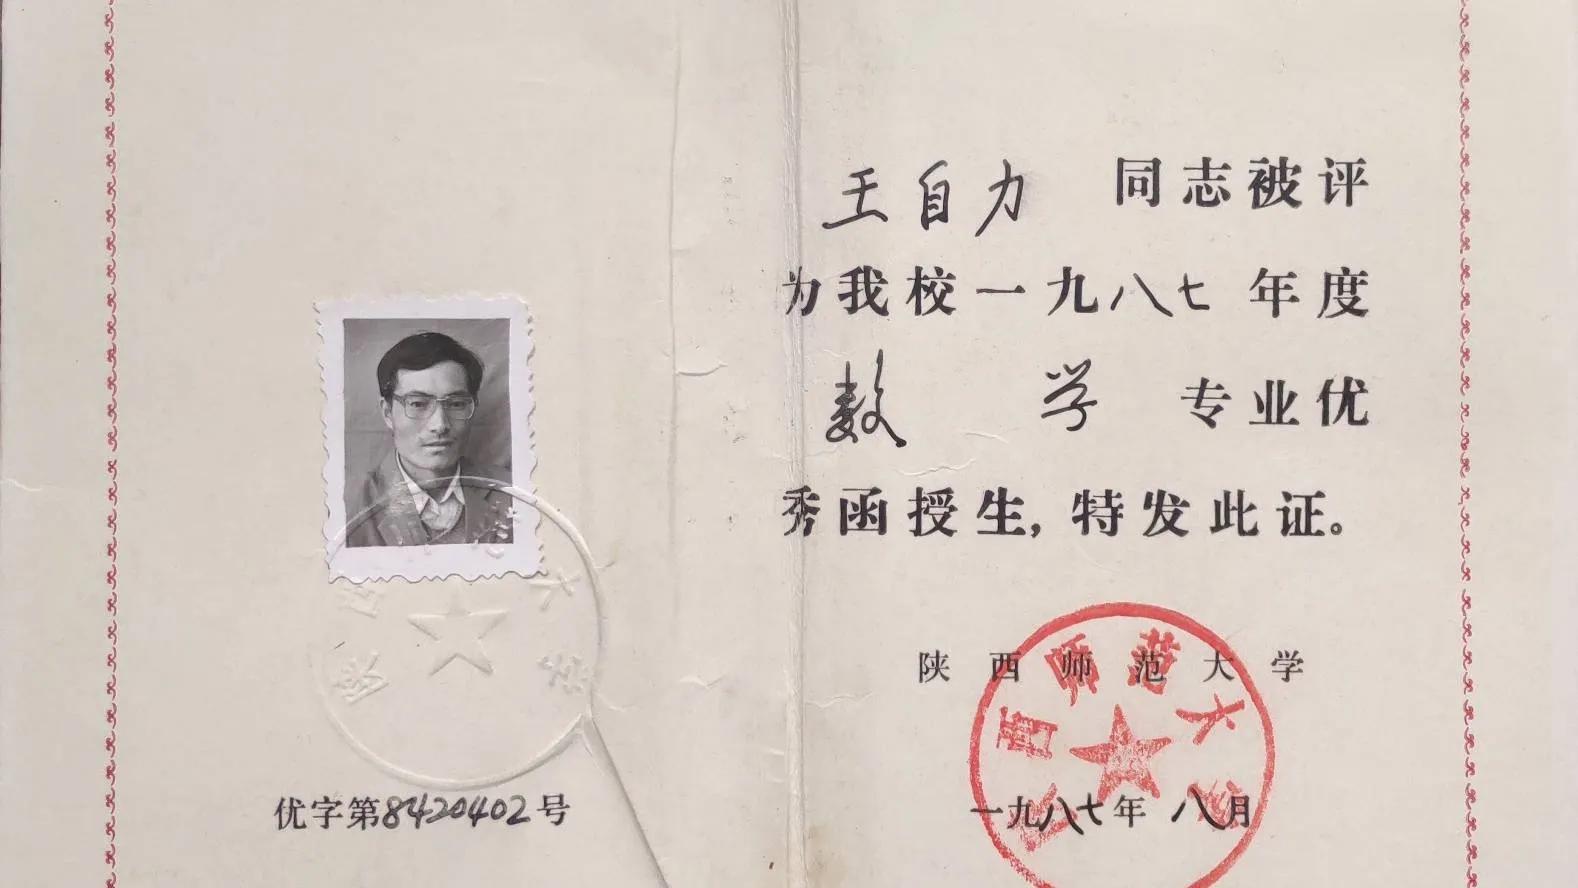 优字第8420402号
王自力 同志被评
为我校一九八七年度
数学 专业优
秀函授生，特发此证。
陕西师范大学
一九八七年八月
陕西师范大学